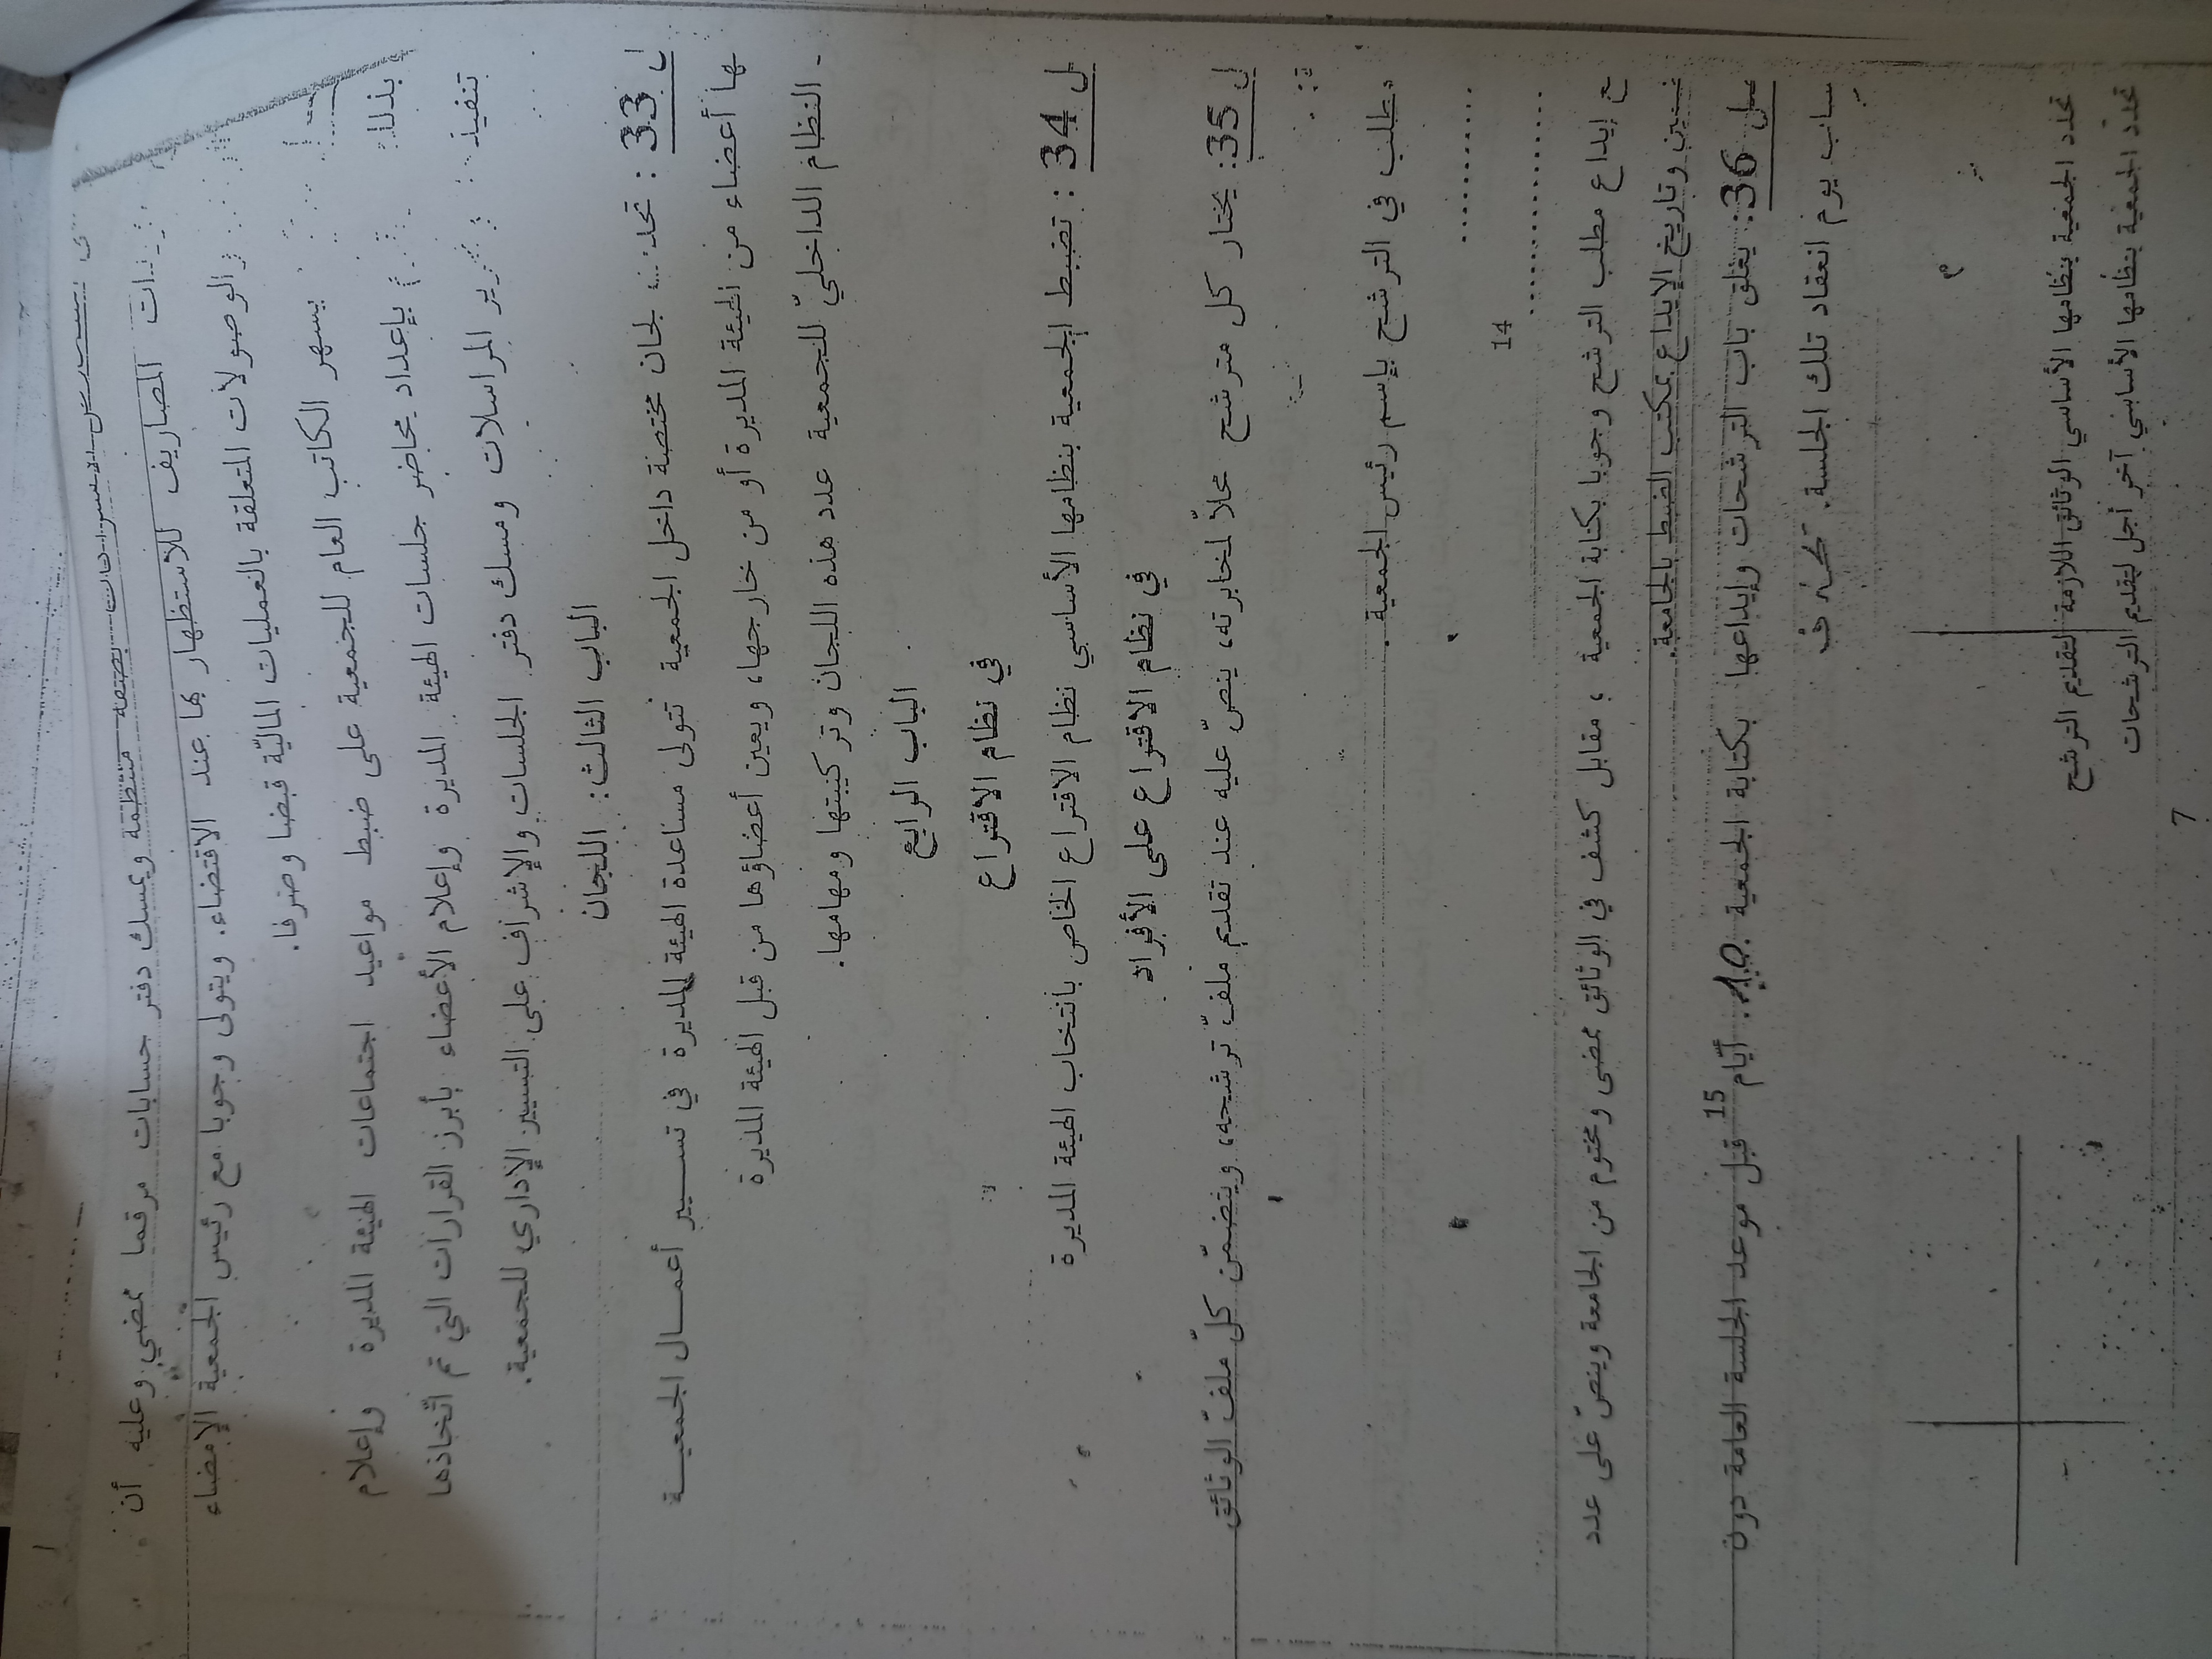 وعليه أن يمسك دفتر حسابات مرقما ممضي
المصاريف للاستظهار بها عند الاقتضاء. ويتولى وجوبا مع رئيس الجمعية الإمضاء
الوصولات المتعلقة بالعمليات المالية قبضا وصرفا.
يسهر الكاتب العام للجمعية على ضبط مواعيد اجتماعات الهيئة المديرة وإعلام
بإعداد محاضر جلسات الهيئة المديرة وإعلام الأعضاء بأبرز القرارات التي تم اتخاذها
تنفيذ المراسلات ومسك دفتر الجلسات والإشراف على التسيير الإداري للجمعية.
الباب الثالث: اللجان
ل 33 : لجان مختصة داخل الجمعية تتولى مساعدة الهيئة المديرة في تسيير أعمال الجمعية
أعضاء من الهيئة المديرة أو من خارجها، ويعين أعضاؤها من قبل الهيئة المديرة
النظام الداخليّ للجمعية عدد هذه اللجان وتركيبتها ومهامها.
الباب الرابع
في نظام الاقتراع
ل 34 : تضبط الجمعية بنظامها الأساسي نظام الاقتراع الخاص بانتخاب الهيئة المديرة
في نظام الاقتراع على الأفراد
ل 35: يختار كل مترشح محلاّ لمخابرته، ينصّ عليه عند تقديم ملفّ ترشحه، ويتضمّن كلّ ملفّ الوثائق
مطلب في الترشح بإسم رئيس الجمعية.
14
إيداع مطلب الترشح وجوبا بكتابة الجمعية ؛ مقابل كشف في الوثائق ممضى ومختوم من الجامعة وينصّ على عدد
وتاريخ الإيداع بمكتب الضبط بالجامعة.
36: يغلق باب الترشحات وإيداعها بكتابة الجمعية 10 15 أيّام قبل موعد الجلسة العامة دون
يوم انعقاد تلك الجلسة.
تحدد الجمعية بنظامها الأساسي الوثائق اللازمة لتقديم الترشح
تحدّد الجمعية بنظامها الأساسي آخر أجل لتقديم الترشحات
7